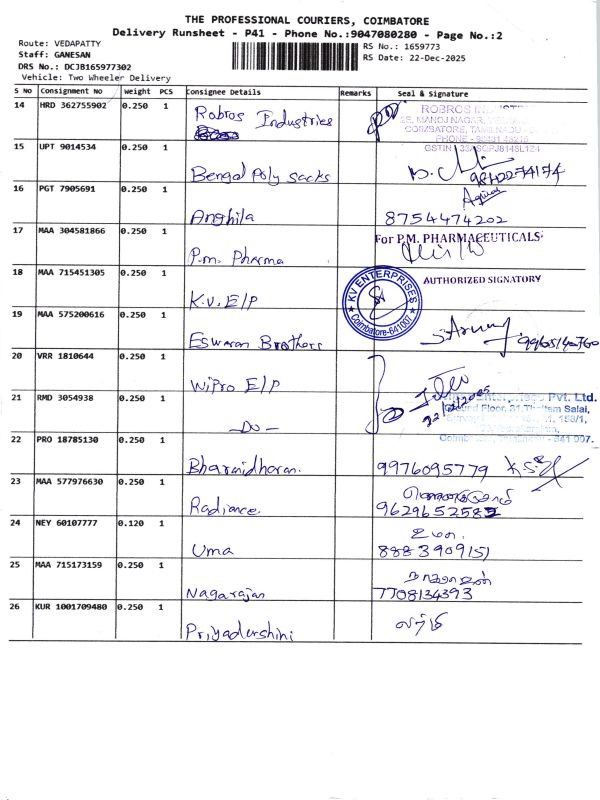 THE PROFESSIONAL COURIERS, COIMBATORE
Delivery Runsheet - P41 - Phone No.:9047080280 - Page No.:2
Route: VEDAPATTY
RS No.: 1659773
Staff: GANESAN
RS Date: 22-Dec-2025
DRS No.: DCJB165977302
Vehicle: Two Wheeler Delivery
S NO Consignment No Weight PCS Consignee Details Remarks Seal & Signature
14 HRD 362755902 0.250 1 Robros Industries
ROBROS
COIMBATORE, TAMILNADU
15 UPT 9014534 0.250 1 Bengal Poly sacks
16 PGT 7905691 0.250 1 Anghila 8754474202
17 MAA 304581866 0.250 1 P.m. Pharma
For P.M. PHARMACEUTICALS
AUTHORIZED SIGNATORY
18 MAA 715451305 0.250 1 K.V. E/P
KV ENTERPRISES
Coimbatore-641007
19 MAA 575200616 0.250 1 Eswaran Brothers
20 VRR 1810644 0.250 1 Wipro E/P
21 RMD 3054938 0.250 1 -Do-
22/12/2025
Pvt. Ltd.
22 PRO 18785130 0.250 1 Bharanidharan. 9976095779
23 MAA 577976630 0.250 1 Radiance.
24 NEY 60107777 0.120 1 Uma உமா.
8883909151
25 MAA 715173159 0.250 1 Nagarajan நாகராஜன்
7708134393
26 KUR 1001709480 0.250 1 Priyadershini